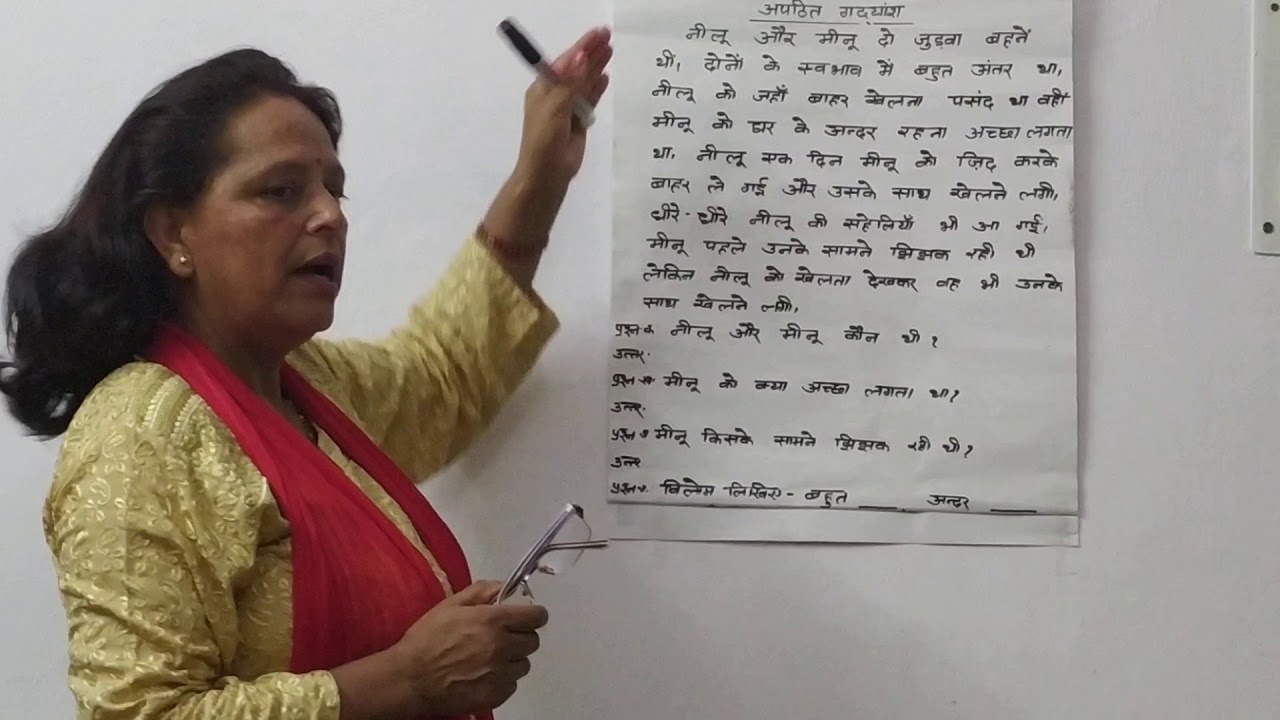 अपठित गद्यांश
नीलू और मीनू दो जुड़वा बहनें
थी, दोनों के स्वभाव में बहुत अंतर था,
नीलू को जहाँ बाहर खेलता पसंद था वहीं
मीनू को घर के अन्दर रहना अच्छा लगता
था, नीलू एक दिन मीनू को ज़िद करके
बाहर ले गई और उसके साथ खेलने लगी,
धीरे-धीरे नीलू की सहेलियाँ भी आ गई,
मीनू पहले उनके सामने झिझक रही थी
लेकिन नीलू को खेलता देखकर वह भी उनके
साथ खेलने लगी,
प्रश्न नीलू और मीनू कौन थी?
उत्तर.
प्रश्न मीनू को क्या अच्छा लगता था?
उत्तर.
प्रश्न मीनू किसके सामने झिझक रही थी?
उत्तर
प्रश्न विलोम लिखिए- बहुत ____ अन्दर ____